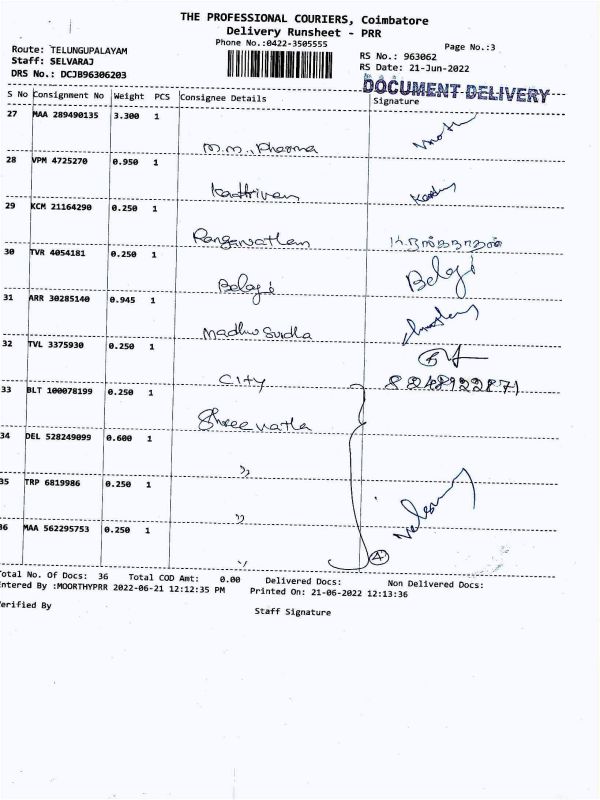 THE PROFESSIONAL COURIERS, Coimbatore
Delivery Runsheet - PRR
Phone No.:0422-3505555
Page No.:3
Route: TELUNGUPALAYAM
Staff: SELVARAJ
DRS No.: DCJB96306203
RS No.: 963062
RS Date: 21-Jun-2022
DOCUMENT DELIVERY
S No Consignment No Weight PCS Consignee Details Signature
27 MAA 289490135 3.300 1
M.M. Pharma
28 VPM 4725270 0.950 1
Kathirvan
29 KCM 21164290 0.250 1
Ranganathan ரங்கநாதன்
30 TVR 4054181 0.250 1
Belaji Belaji
31 ARR 30285140 0.945 1
Madhu Sudha
32 TVL 3375930 0.250 1
City 8248922871
33 BLT 100078199 0.250 1
Shree vatla
34 DEL 528249099 0.600 1
"
35 TRP 6819986 0.250 1
"
36 MAA 562295753 0.250 1
"
4
Total No. Of Docs: 36 Total COD Amt: 0.00 Delivered Docs: Non Delivered Docs:
Entered By :MOORTHYPRR 2022-06-21 12:12:35 PM Printed On: 21-06-2022 12:13:36
Verified By Staff Signature